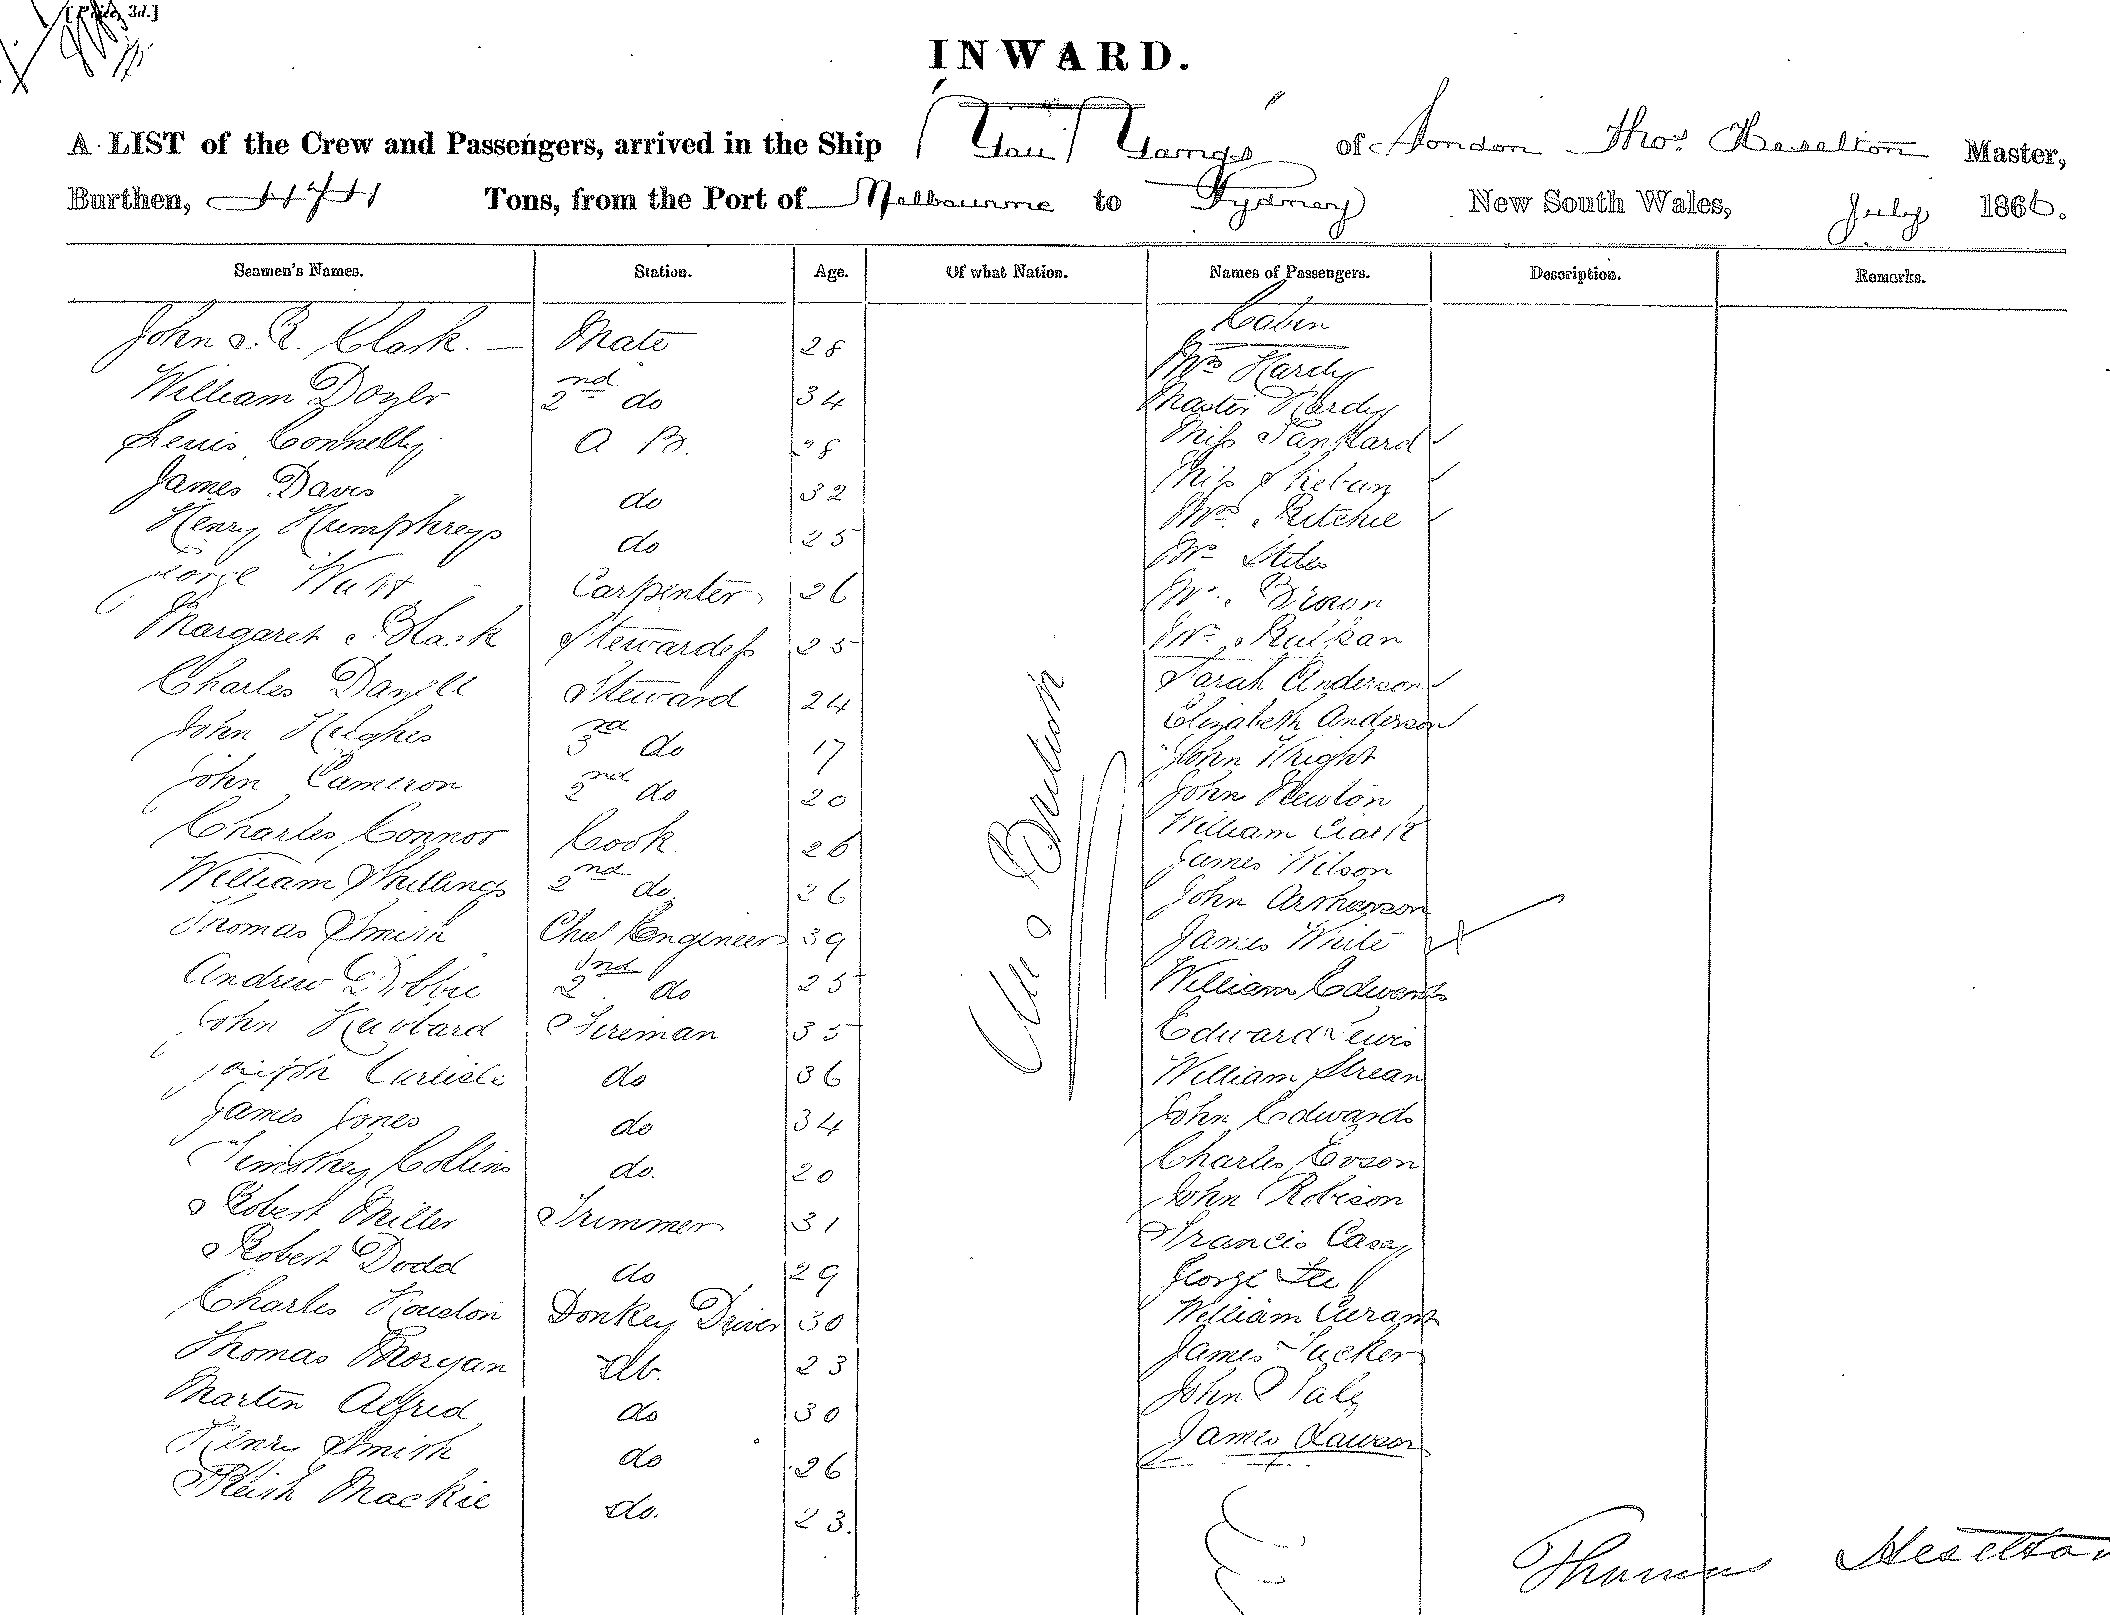 [Price, 3d.]
INWARD.
A LIST of the Crew and Passengers, arrived in the Ship "You Yangs" of London Thos Heselton Master,
Burthen, 474 Tons, from the Port of Melbourne to Sydney New South Wales, July 1866.
Seamen's Names. Station. Age. Of what Nation. Names of Passengers. Description. Remarks.
Cabin
John S. R. Clark. Mate 28 Mrs Hardy
William Doyle 2nd do 34 Master Hardy
Lewis Connelly A B. 28 Miss Tankard
James Davis do 32 Miss
Henry Humphreys do 25 Mrs Ritchie
George Watt Carpenter 26 Mr Stiles
Margaret Black Stewardess 25 Mr. Brown
Charles Steward 24 Mr
John Hughes 3rd do 17 Sarah Anderson
John Cameron 2nd do 20 Elizabeth Anderson
Charles Connor Cook 26 John Wright
William Skillings 2nd do 26 John Newton
Thomas Smith Chief Engineer 39 William Clark
Andrew Dobbie 2nd do 25 James Wilson
John Fireman 35 John
Joseph Carlisle do 36 James White
James Jones do 34 William Edwards
Timothy Collins do. 20 Edward Lewis
Robert Miller Trimmer 31 William Strean
Robert Dodd do 29 John Edwards
Charles Houston Donkey Driver 30 Charles Evson
Thomas Morgan Ab. 23 John Robison
Martin Alfred do 30 Francis Casey
Henry Smith do 26 George Lee
Keith Mackie do. 23. William Curant
James Tucker
John Daly
James Lawson
All British
Thomas Heselton